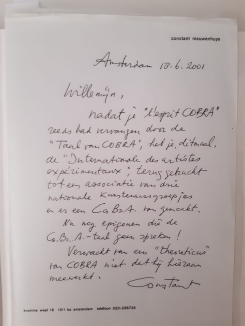 constant nieuwenhuys
Amsterdam 18.6.2001
Willemijn,
nadat je "l'esprit COBRA"
reeds had vervangen door de
"Taal van COBRA", heb je, ditmaal,
de "Internationale des artistes
expérimentaux", terug gebracht
tot een associatie van drie
nationale kunstenaarsgroepjes
en er een Co.Br.A. van gemaakt.
Nu nog epigonen die de
Co.Br.A.-taal gaan spreken!
Verwacht van een "theoreticus"
van COBRA niet dat hij hieraan
meewerkt.
Constant
amsterdam telefoon